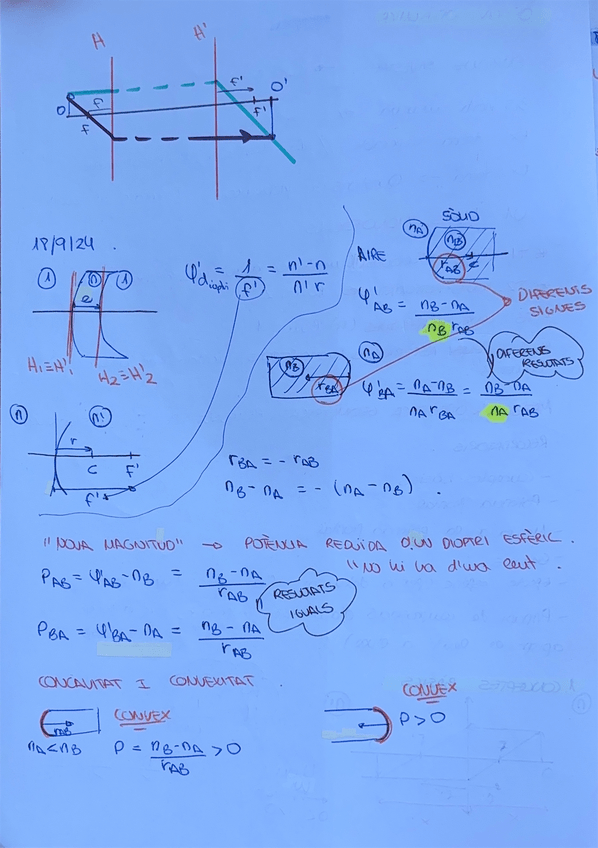 H H'
f'
O'
f
O
f'
F
18/9/24.
1 n 1
e
H₁≡H'₁
H₂≡H'₂
φ'diopli = 1/f' = (n'-n)/(n' r)
n n'
r
C F'
f'
SÒLID
nA
nB
AIRE
rAB
C
φ'AB = (nB-nA)/(nB rAB)
DIFERENTS
SIGNES
nB
nA
rBA
DIFERENS
RESULTATS
φ'BA = (nA-nB)/(nA rBA) = (nB-nA)/(nA rAB)
rBA = - rAB
nB - nA = - (nA - nB).
"NOVA MAGNITUD" → POTÈNCIA REDUÏDA D'UN DIOPTRI ESFÈRIC.
"NO hi ha d'una lent.
PAB = φ'AB · nB = (nB - nA)/rAB
RESULTATS
IGUALS
PBA = φ'BA · nA = (nB - nA)/rAB
CONCAVITAT I CONVEXITAT.
rAB
CONVEX
nA < nB P = (nB-nA)/rAB > 0
CONVEX
P > 0